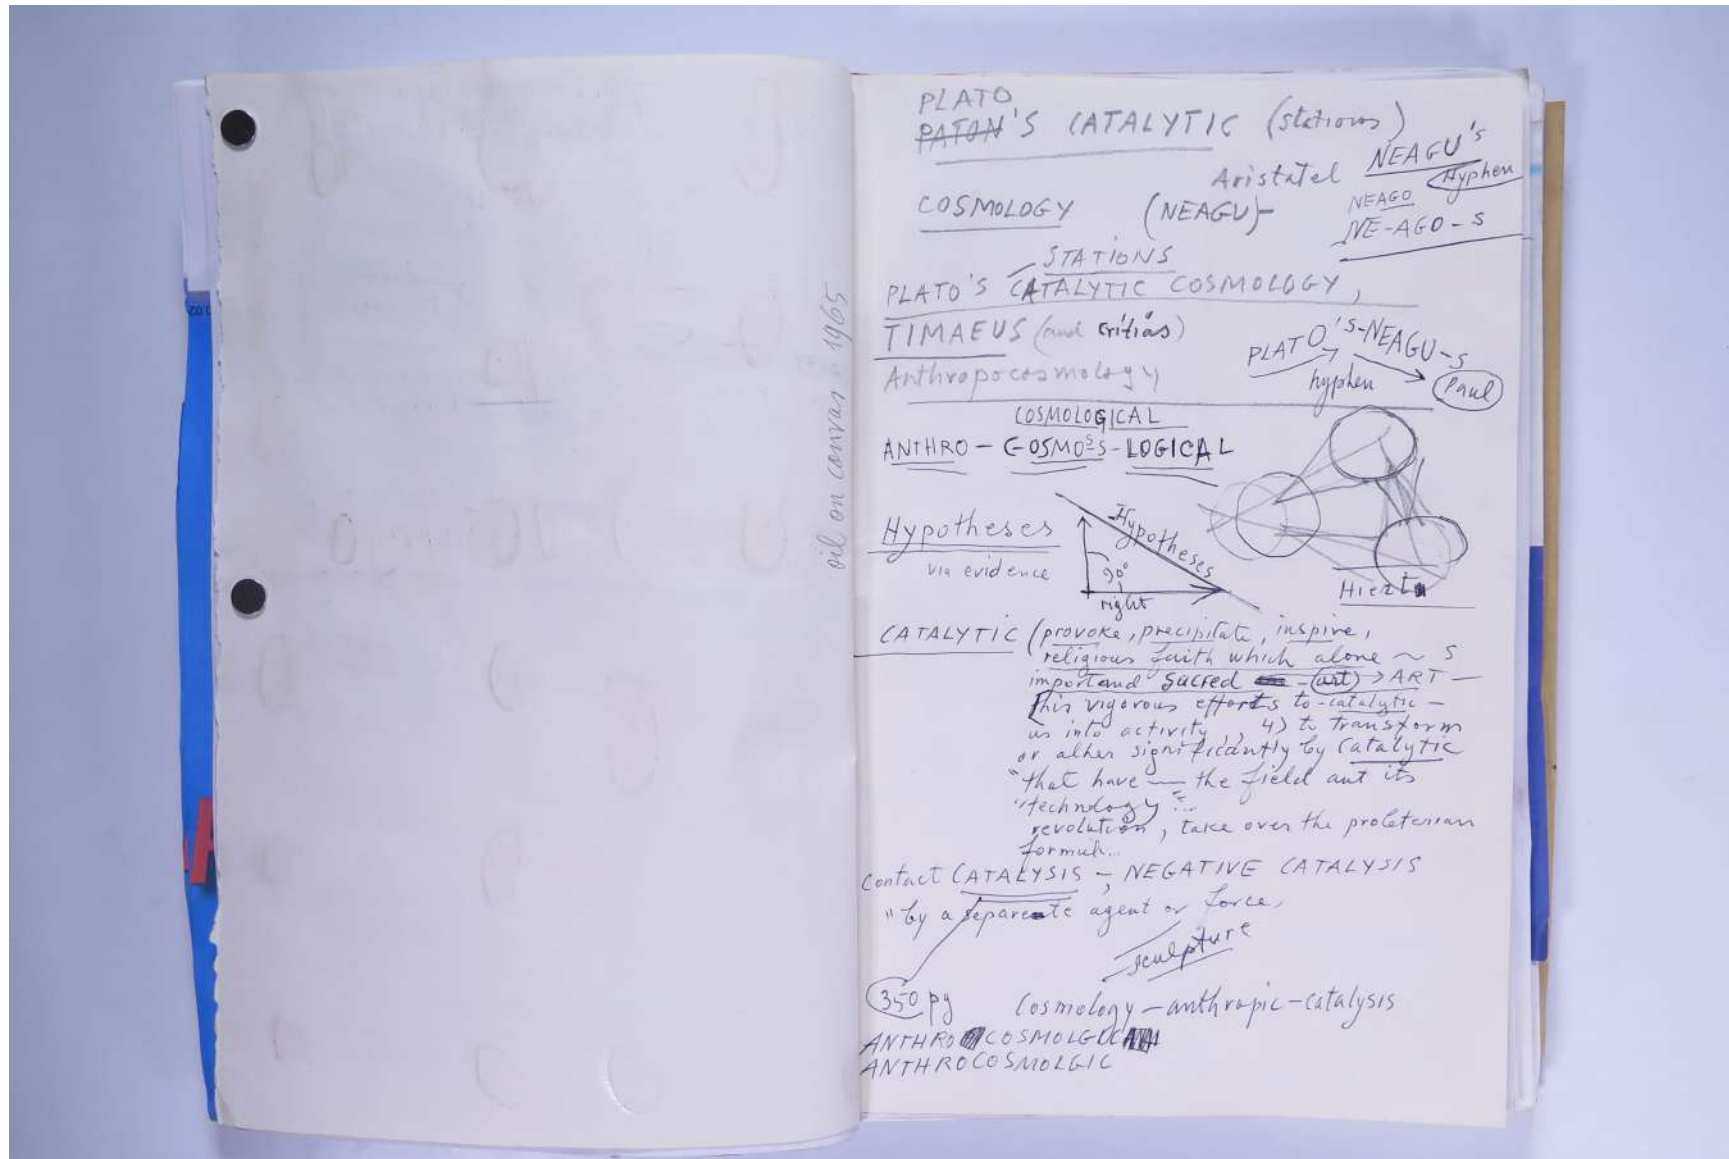 oil on canvas - 1965
PLATO
PATON'S CATALYTIC (stations)
NEAGU's
Aristatel
Hyphen
COSMOLOGY (NEAGU)-
NEAGO
NE-AGO-S
STATIONS
PLATO'S CATALYTIC COSMOLOGY,
TIMAEUS (and critias)
PLATO'S-NEAGU-S
hyphen
Paul
Anthropocosmology
COSMOLOGICAL
ANTHRO - COSMOS-S-LOGICAL
Hypotheses
via evidence
Hypotheses
90°
right
CATALYTIC (provoke, precipitate, inspire,
religious faith which alone ~ S
importand sacred (art) > ART —
his vigorous efforts to -catalytic -
us into activity, 4) to transform
or alther significantly by catalytic
"that have — the field ant its
"technology"...
revolution, take over the proleterian
formul...
Contact CATALYSIS -, NEGATIVE CATALYSIS
"by a separate agent or force,
sculpture
350 pg Cosmology - anthropic - catalysis
ANTHRO COSMOLGIC
ANTHROCOSMOLGIC